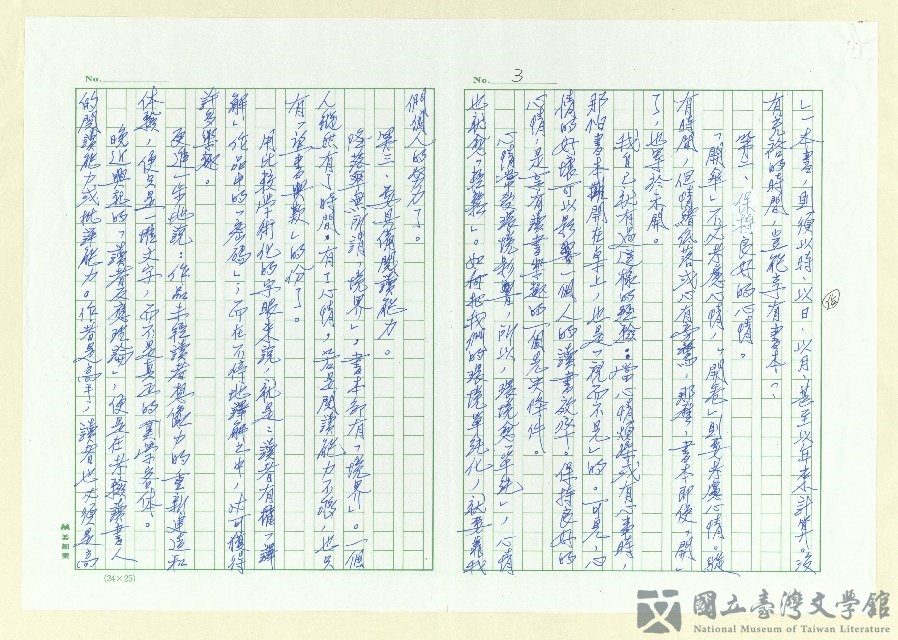 No. 3
」一本書，則須以時、以日、以月、甚至以年來計算。沒
有充裕的時間，豈能享有書本?
第二、保持良好的心情。
「開卷」不必考慮心情，「開卷」則要考慮心情。縱
有時間，但情緒低落或心有旁騖，那麼，書本即使「開」
了，也等於未開。
我自己就有過這樣的經驗：當心情煩躁或有心事時，
那怕書本攤開在桌上，也是「視而不見」的。可見，心
情的好壞可以影響一個人的讀書效率。保持良好的
心情，是享有讀書樂趣的一個先決條件。
心情常受環境影響，所以，環境愈「單純」，心情
也就愈「 」。如何把我們的環境單純化，就要靠我
No.
們個人的努力了。
第三、要具備閱讀能力。
除蔡 所謂「境界」。書本都有「境界」。一個
人縱然有了時間，有了心情，若是閱讀能力不夠，也只
有「望書興歎」的份了。
用比較學術化的字眼來說，就是：讀者有權「譯
解」作品中的「密碼」，而在不停地譯解之中，才可獲得
許多樂趣。
更進一步地說：作品未經讀者想像力的重新建造和
体驗，便只是一種文字，而不是真正的美學客体。
晚近興起的「讀者反應理論」，便是在考驗讀書人
的閱讀能力或批評能力。作者是高手，讀者也必須是高
(24×25)
國立臺灣文學館
National Museum of Taiwan Literature